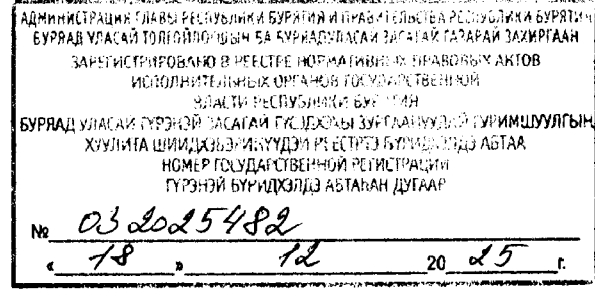 АДМИНИСТРАЦИЯ ГЛАВЫ РЕСПУБЛИКИ БУРЯТИЯ И ПРАВИТЕЛЬСТВА РЕСПУБЛИКИ БУРЯТИЯ
БУРЯАД УЛАСАЙ ТОЛГОЙЛОГШЫН БА БУРЯАД УЛАСАЙ ЗАСАГАЙ ГАЗАРАЙ ЗАХИРГААН
ЗАРЕГИСТРИРОВАНО В РЕЕСТРЕ НОРМАТИВНЫХ ПРАВОВЫХ АКТОВ
ИСПОЛНИТЕЛЬНЫХ ОРГАНОВ ГОСУДАРСТВЕННОЙ
ВЛАСТИ РЕСПУБЛИКИ БУРЯТИЯ
БУРЯАД УЛАСАЙ ГҮРЭНЭЙ ЗАСАГАЙ ГҮЙСЭДХЭХЫ ЗУРГААНУУДАЙ ГУРИМШУУЛГЫН
ХУУЛИТА ШИИДХЭБЭРИНҮҮДЭЙ РЕЕСТРТЭ БҮРИДХЭЛДЭ АБТАА
НОМЕР ГОСУДАРСТВЕННОЙ РЕГИСТРАЦИИ
ГҮРЭНЭЙ БҮРИДХЭЛДЭ АБТАҺАН ДУГААР
№ 032025482
« 18 » 12 20 25 г.